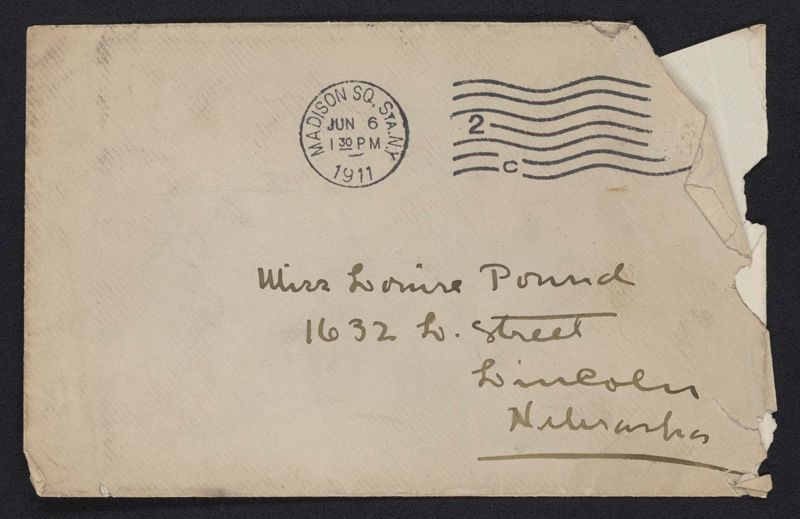 MADISON SQ. STA. N.Y.
JUN 6
1 30 PM
1911
2
C
Miss Louise Pound
1632 L. Street
Lincoln
Nebraska